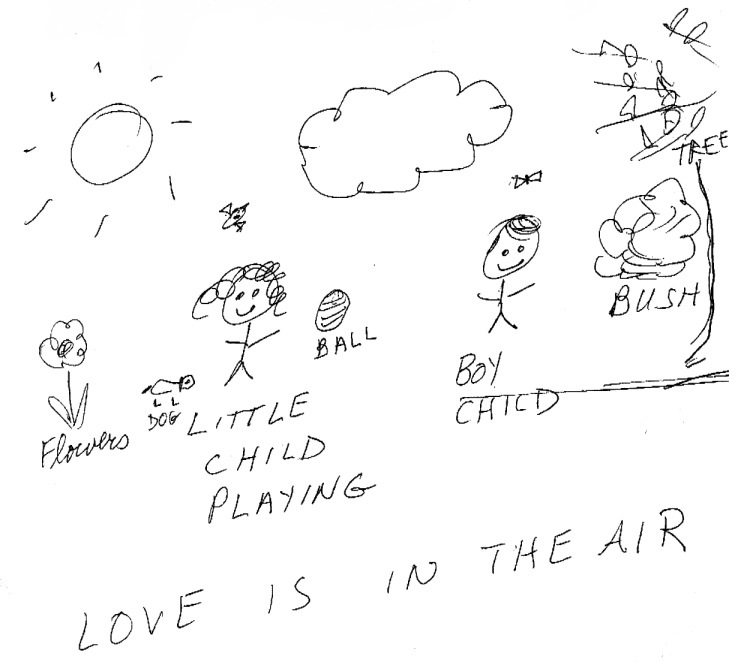 TREE
BUSH
BALL
BOY
CHILD
Flowers
DOG
LITTLE
CHILD
PLAYING
LOVE IS IN THE AIR